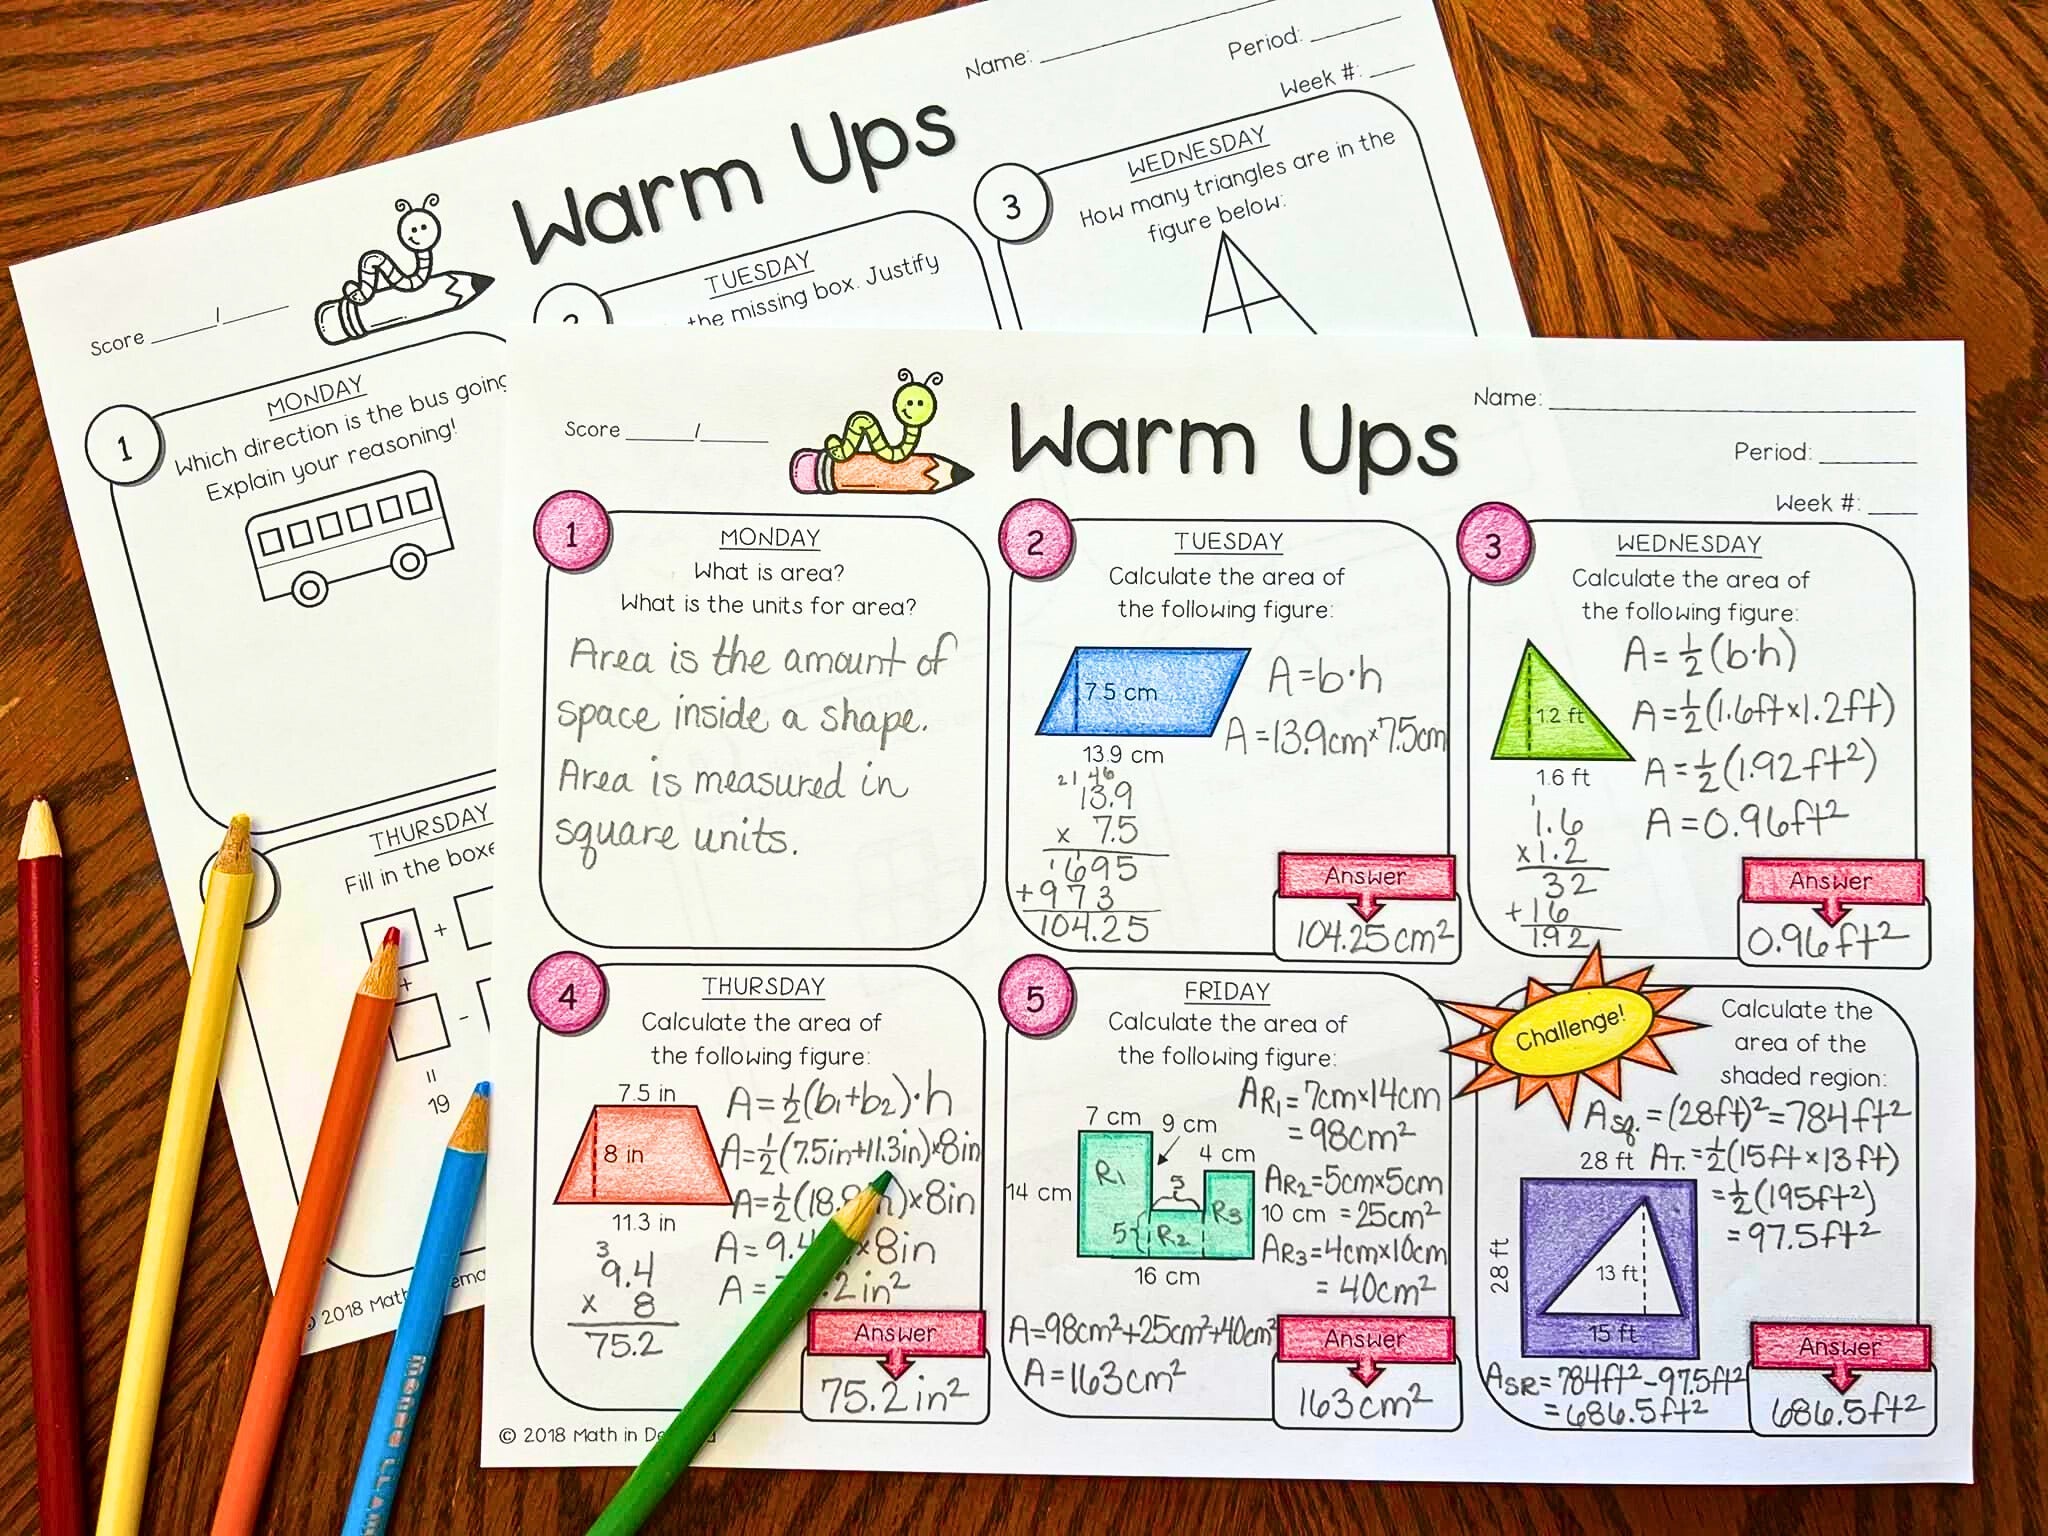 Name:
Period:
Week #:
Warm Ups
Score /
1
MONDAY
Which direction is the bus going
Explain your reasoning!
TUESDAY
the missing box. Justify
3
WEDNESDAY
How many triangles are in the
figure below:
THURSDAY
Fill in the boxe
+
+
-
=
19
© 2018 Math
Score /
Warm Ups
Name:
Period:
Week #:
1
MONDAY
What is area?
What is the units for area?
Area is the amount of
space inside a shape.
Area is measured in
square units.
2
TUESDAY
Calculate the area of
the following figure:
7.5 cm
13.9 cm
A=b·h
A=13.9cm×7.5cm
21 46
13.9
x 7.5
1695
+973
104.25
Answer
104.25cm²
3
WEDNESDAY
Calculate the area of
the following figure:
1.2 ft
1.6 ft
A=½(b·h)
A=½(1.6ft×1.2ft)
A=½(1.92ft²)
A=0.96ft²
1
1.6
×1.2
32
+16
1.92
Answer
0.96ft²
4
THURSDAY
Calculate the area of
the following figure:
7.5 in
8 in
11.3 in
A=½(b₁+b₂)·h
A=½(7.5in+11.3in)×8in
A=½(18. )×8in
A=9.4 ×8in
A= .2in²
3
9.4
x 8
75.2
Answer
75.2in²
5
FRIDAY
Calculate the area of
the following figure:
7 cm
9 cm
4 cm
14 cm
10 cm
16 cm
R₁
5
5
R₂
R₃
AR₁=7cm×14cm
=98cm²
AR₂=5cm×5cm
=25cm²
AR₃=4cm×10cm
=40cm²
A=98cm²+25cm²+40cm²
A=163cm²
Answer
163cm²
Challenge!
Calculate the
area of the
shaded region:
28 ft
28 ft
13 ft
15 ft
Asq.=(28ft)²=784ft²
AT.=½(15ft×13ft)
=½(195ft²)
=97.5ft²
ASR=784ft²-97.5ft²
=686.5ft²
Answer
686.5ft²
© 2018 Math in De